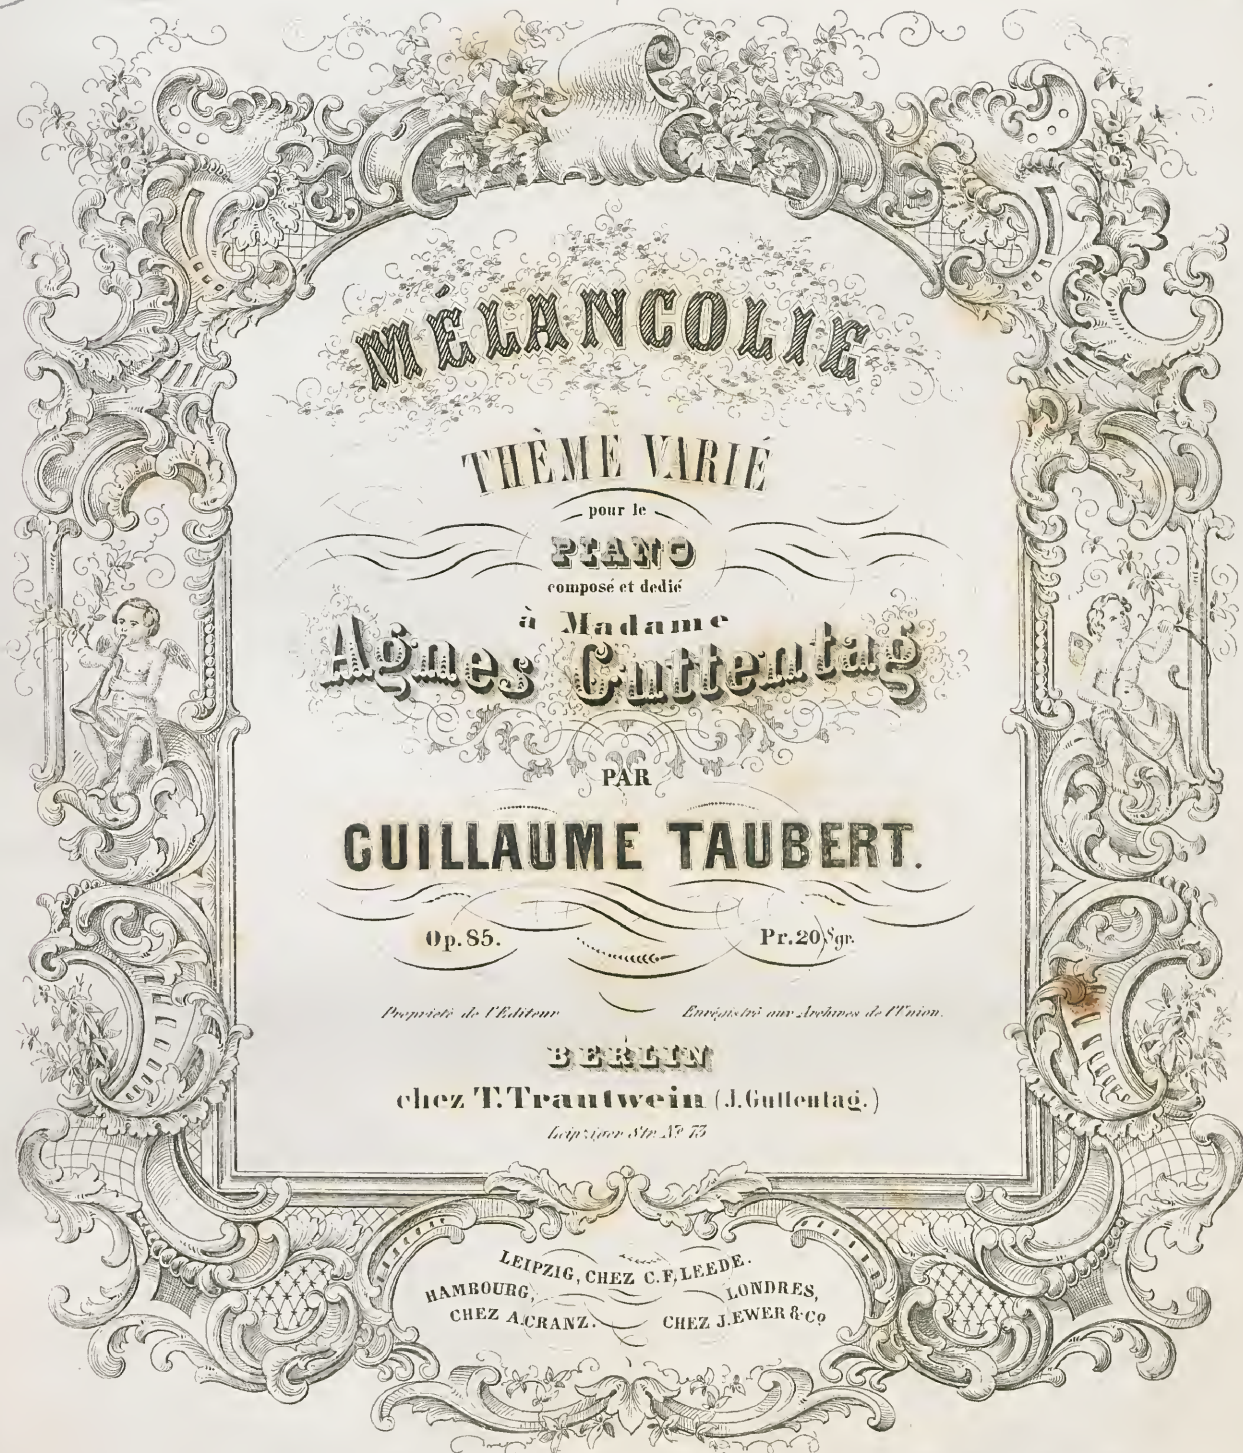 MÉLANCOLIE
THÈME VARIÉ
pour le
PIANO
composé et dedié
à Madame
Agnes Guttentag
PAR
GUILLAUME TAUBERT.
Op. 85. Pr. 20 Sgr.
Propriété de l'Editeur Enrégistré aux Archives de l'Union.
BERLIN
chez T. Trautwein (J. Guttentag.)
Leipziger Str. Nº 73
LEIPZIG, CHEZ C. F. LEEDE.
HAMBOURG, LONDRES,
CHEZ A. CRANZ. CHEZ J. EWER & Cº